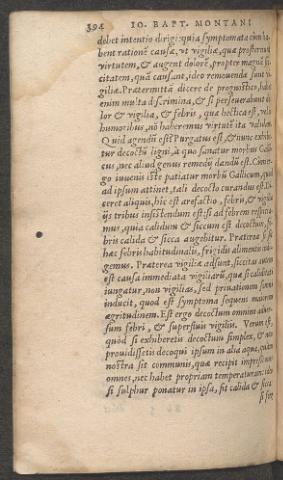 394 IO. BAPT. MONTANI
debet intentio dirigi: quia symptomata cùm ha-
bent rationē causæ, vt vigiliæ, quæ prosternunt
virtutem, & augent dolorē, propter magnā sic
citatem, quā causant, ideo remouenda sunt vi
giliæ. Prætermittā dicere de prognostico, habet
enim multa discrimina, & si perseuerabunt do
lor & vigiliæ, & febris, quæ hectica est, vel ex
humoribus, nō habemus virtutē ita validam.
Quid agendū est? Purgatus est, & nunc exhibe
tur decoctū ligni, à quo sanatur morbus Galli
cus, nec aliud genus remedij dandū est. Cùm er-
go iuuenis iste patiatur morbū Gallicum, quod
ad ipsum attinet, tali decocto curandus est. Di
ceret aliquis, hic est arefactio, febris, & vigiliæ
ijs tribus insistendum est: si ad febrem respicia-
mus, quia calidum & siccum est decoctum, fe-
bris calida & sicca augebitur. Præterea si sit
hæc febris habitudinalis, frigido alimento indi-
gemus. Præterea vigiliæ adsunt, siccitas autem
est causa immediata vigiliarū, quæ si caliditati
iungatur, non vigilias, sed priuationem somni
inducit, quod est symptoma sequens maiorem
ægritudinem. Est ergo decoctum omnino aduer-
sum febri, & superfluis vigilijs. Verum est,
quòd si exhiberetis decoctum simplex, & non
prouidissetis decoqui ipsum in alia aqua, quàm
nostra sit communis, quæ recipit impressiones
omnes, nec habet propriam temperaturam: ideo
si sulphur ponatur in ipsa, fit calida & sicca